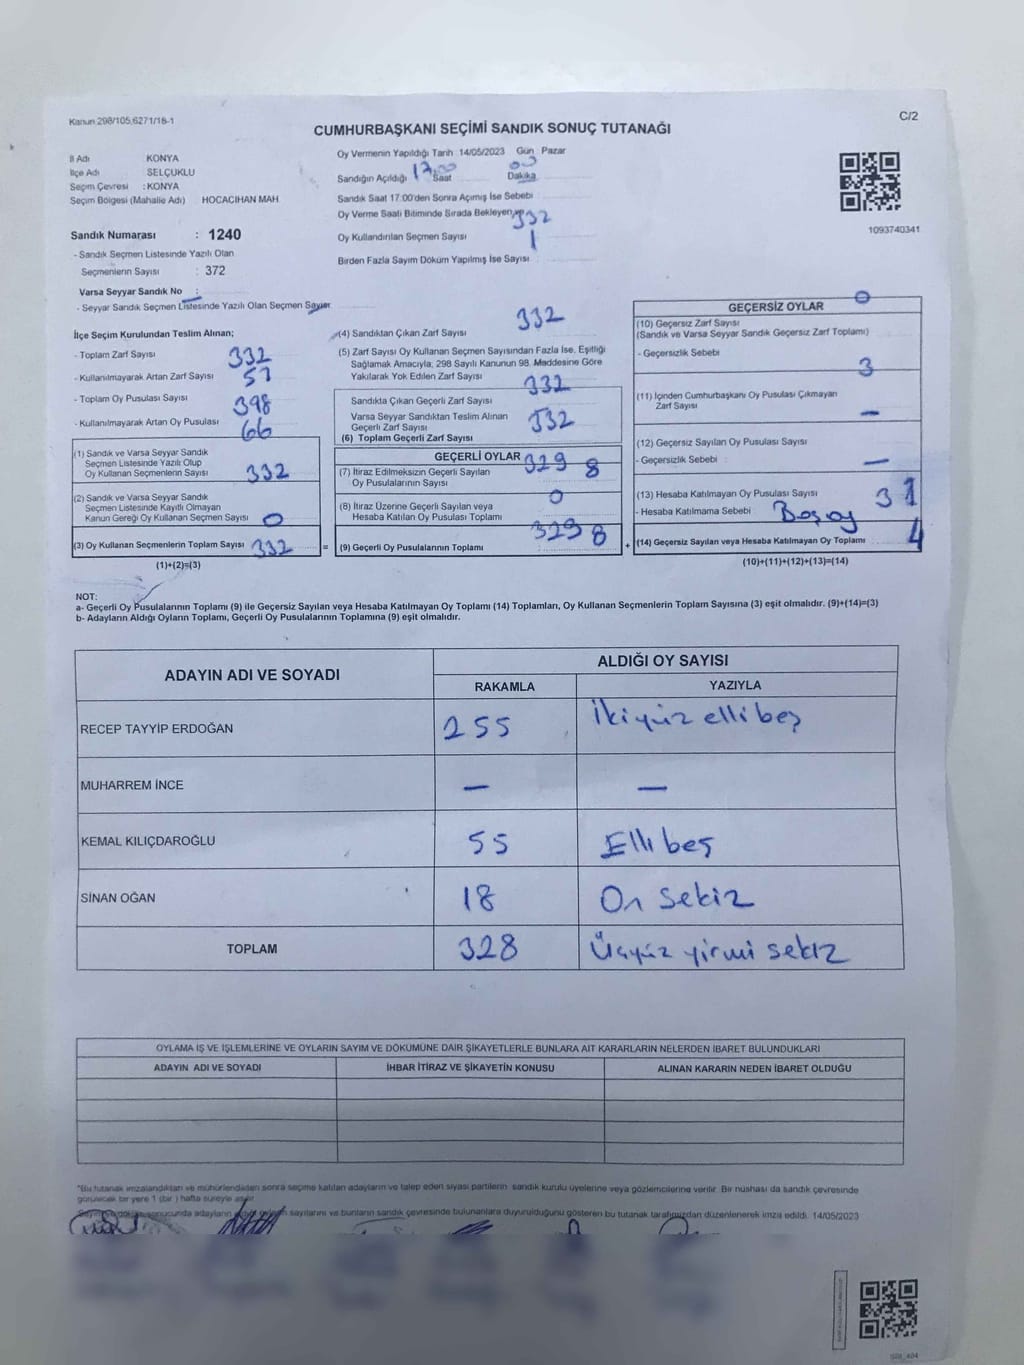 Kanun 298/105,6271/18-1
C/2
CUMHURBAŞKANI SEÇİMİ SANDIK SONUÇ TUTANAĞI
İl Adı KONYA
İlçe Adı SELÇUKLU
Seçim Çevresi :KONYA
Seçim Bölgesi (Mahalle Adı) HOCACIHAN MAH.
Sandık Numarası : 1240
- Sandık Seçmen Listesinde Yazılı Olan
Seçmenlerin Sayısı : 372
Varsa Seyyar Sandık No :
- Seyyar Sandık Seçmen Listesinde Yazılı Olan Seçmen Sayısı
Oy Vermenin Yapıldığı Tarih :14/05/2023 Gün Pazar
Sandığın Açıldığı 17:00 Saat 00 Dakika
Sandık Saat 17:00'den Sonra Açımış İse Sebebi
Oy Verme Saati Bitiminde Sırada Bekleyen
332
Oy Kullandırılan Seçmen Sayısı
1
Birden Fazla Sayım Döküm Yapılmış İse Sayısı
1093740341
İlçe Seçim Kurulundan Teslim Alınan;
- Toplam Zarf Sayısı 332
- Kullanılmayarak Artan Zarf Sayısı
- Toplam Oy Pusulası Sayısı 398
- Kullanılmayarak Artan Oy Pusulası 66
(1) Sandık ve Varsa Seyyar Sandık
Seçmen Listesinde Yazılı Olup
Oy Kullanan Seçmenlerin Sayısı 332
(2) Sandık ve Varsa Seyyar Sandık
Seçmen Listesinde Kayıtlı Olmayan
Kanun Gereği Oy Kullanan Seçmen Sayısı 0
(3) Oy Kullanan Seçmenlerin Toplam Sayısı 332 =
(1)+(2)=(3)
(4) Sandıktan Çıkan Zarf Sayısı 332
(5) Zarf Sayısı Oy Kullanan Seçmen Sayısından Fazla İse, Eşitliği
Sağlamak Amacıyla, 298 Sayılı Kanunun 98. Maddesine Göre
Yakılarak Yok Edilen Zarf Sayısı
332
Sandıkta Çıkan Geçerli Zarf Sayısı
Varsa Seyyar Sandıktan Teslim Alınan
Geçerli Zarf Sayısı 332
(6) Toplam Geçerli Zarf Sayısı
GEÇERLİ OYLAR
(7) İtiraz Edilmeksizin Geçerli Sayılan 329 8
Oy Pusulalarının Sayısı
(8) İtiraz Üzerine Geçerli Sayılan veya 0
Hesaba Katılan Oy Pusulası Toplamı
(9) Geçerli Oy Pusulalarının Toplamı 329 8 +
GEÇERSİZ OYLAR 0
(10) Geçersiz Zarf Sayısı
(Sandık ve Varsa Seyyar Sandık Geçersiz Zarf Toplamı)
- Geçersizlik Sebebi
3
(11) İçinden Cumhurbaşkanı Oy Pusulası Çıkmayan
Zarf Sayısı —
(12) Geçersiz Sayılan Oy Pusulası Sayısı
- Geçersizlik Sebebi : —
(13) Hesaba Katılmayan Oy Pusulası Sayısı 3 1
- Hesaba Katılmama Sebebi Boş oy
(14) Geçersiz Sayılan veya Hesaba Katılmayan Oy Toplamı 4
(10)+(11)+(12)+(13)=(14)
NOT:
a- Geçerli Oy Pusulalarının Toplamı (9) ile Geçersiz Sayılan veya Hesaba Katılmayan Oy Toplamı (14) Toplamları, Oy Kullanan Seçmenlerin Toplam Sayısına (3) eşit olmalıdır. (9)+(14)=(3)
b- Adayların Aldığı Oyların Toplamı, Geçerli Oy Pusulalarının Toplamına (9) eşit olmalıdır.
ADAYIN ADI VE SOYADI ALDIĞI OY SAYISI
RAKAMLA YAZIYLA
RECEP TAYYİP ERDOĞAN 255 İkiyüz elli beş
MUHARREM İNCE — —
KEMAL KILIÇDAROĞLU 55 Elli beş
SİNAN OĞAN 18 On sekiz
TOPLAM 328 Üçyüz yirmi sekiz
OYLAMA İŞ VE İŞLEMLERİNE VE OYLARIN SAYIM VE DÖKÜMÜNE DAİR ŞİKAYETLERLE BUNLARA AİT KARARLARIN NELERDEN İBARET BULUNDUKLARI
ADAYIN ADI VE SOYADI İHBAR İTİRAZ VE ŞİKAYETİN KONUSU ALINAN KARARIN NEDEN İBARET OLDUĞU
*Bu tutanak imzalandıktan ve mühürlendikten sonra seçime katılan adayların ve talep eden siyasi partilerin sandık kurulu üyelerine veya gözlemcilerine verilir. Bir nüshası da sandık çevresinde
görülecek bir yere 1 (bir ) hafta süreyle asılır.
sonucunda adayların sayılarını ve bunların sandık çevresinde bulunanlara duyurulduğunu gösteren bu tutanak tarafımızdan düzenlenerek imza edildi. 14/05/2023